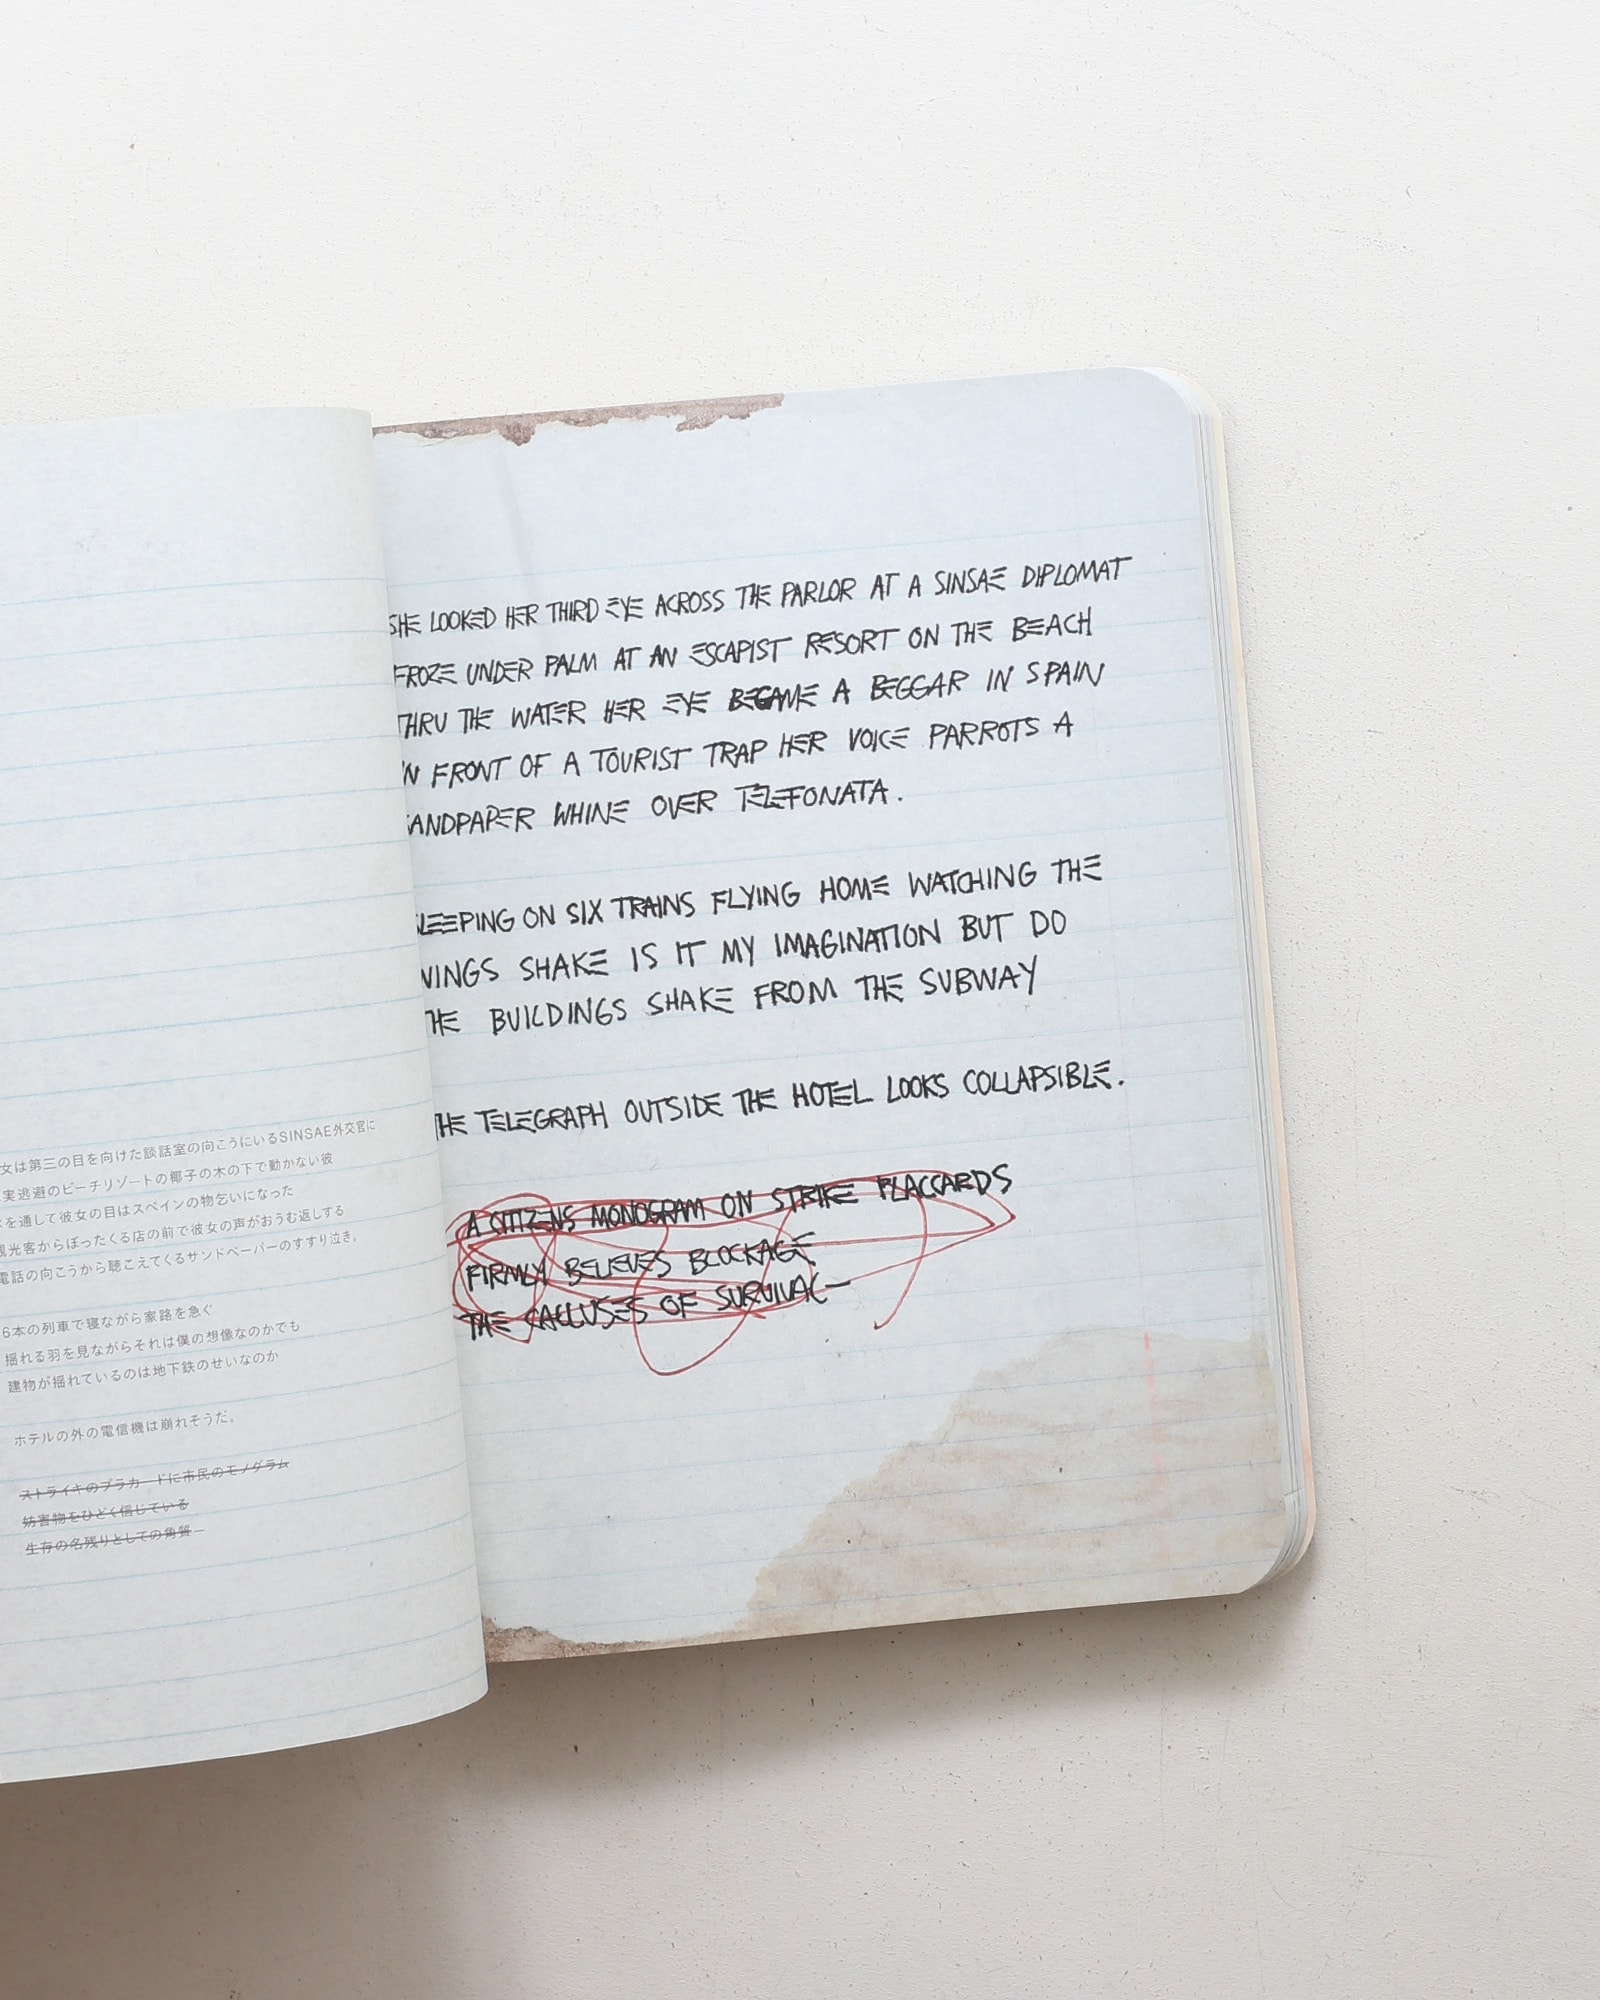 女は第三の目を向けた談話室の向こうにいるSINSAE外交官に
実逃避のビーチリゾートの椰子の木の下で動かない彼
を通して彼女の目はスペインの物乞いになった
観光客からぼったくる店の前で彼女の声がおうむ返しする
電話の向こうから聴こえてくるサンドペーパーのすすり泣き。
6本の列車で寝ながら家路を急ぐ
揺れる羽を見ながらそれは僕の想像なのかでも
建物が揺れているのは地下鉄のせいなのか
ホテルの外の電信機は崩れそうだ。
ストライキのプラカードに市民のモノグラム
妨害物をひどく信じている
生存の名残りとしての角質—
SHE LOOKED HER THIRD EYE ACROSS THE PARLOR AT A SINSAE DIPLOMAT
FROZE UNDER PALM AT AN ESCAPIST RESORT ON THE BEACH
THRU THE WATER HER EYE BECAME A BEGGAR IN SPAIN
IN FRONT OF A TOURIST TRAP HER VOICE PARROTS A
SANDPAPER WHINE OVER TELEFONATA.
SLEEPING ON SIX TRAINS FLYING HOME WATCHING THE
WINGS SHAKE IS IT MY IMAGINATION BUT DO
THE BUILDINGS SHAKE FROM THE SUBWAY
THE TELEGRAPH OUTSIDE THE HOTEL LOOKS COLLAPSIBLE.
A CITIZENS MONOGRAM ON STRIKE PLACCARDS
FIRMLY BELIEVES BLOCKAGE
THE CALLUSES OF SURVIVAL—